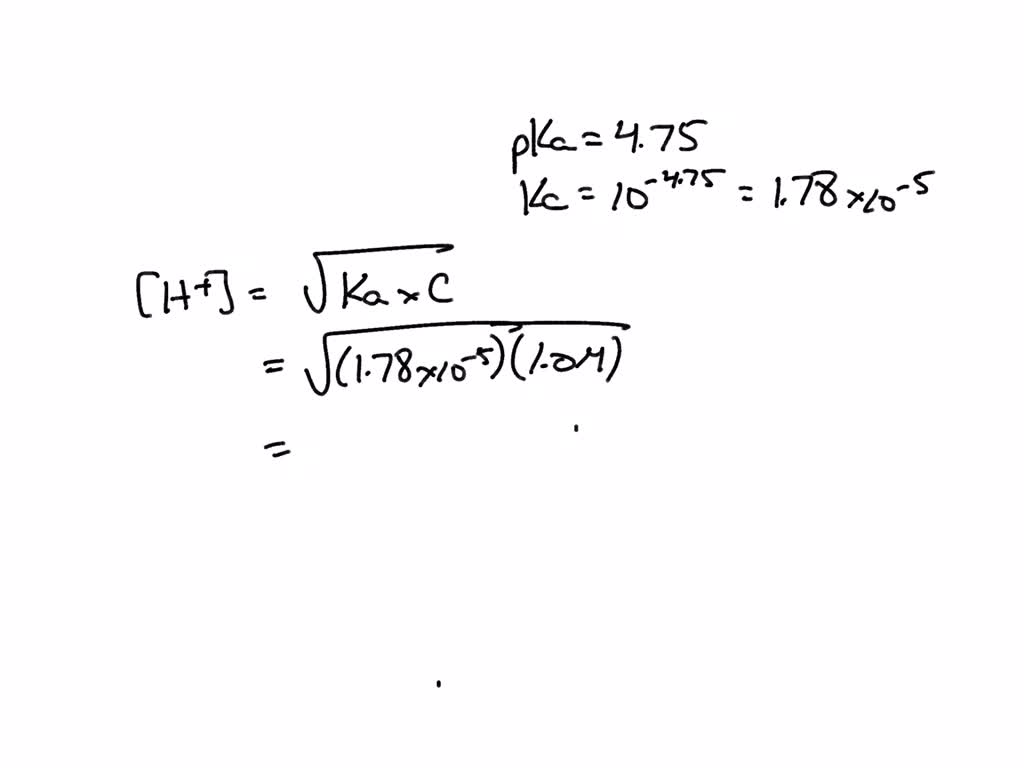 pKa = 4.75
Kc = 10^-4.75 = 1.78 × 10^-5
[H+] = √Ka × C
= √(1.78 × 10^-5)(1.0M)
=